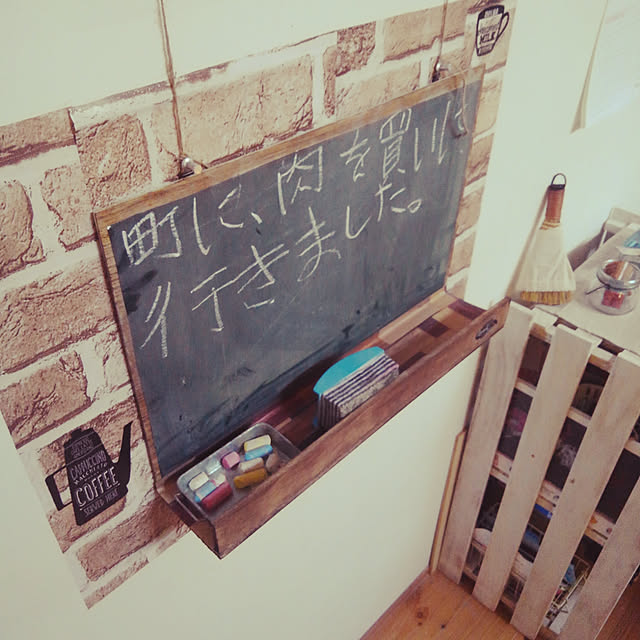 町に、肉を買いに
行きました。
CAPPUCCINO
COFFEE
SERVED HERE
MILK